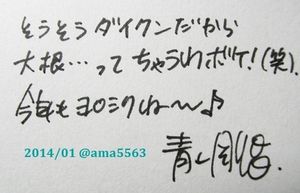 そうそうダイクンだから
大根…ってちゃうわボケ!(笑).
今年もヨロシクね〜〜♪
青山剛昌.
2014/01 @ama5563